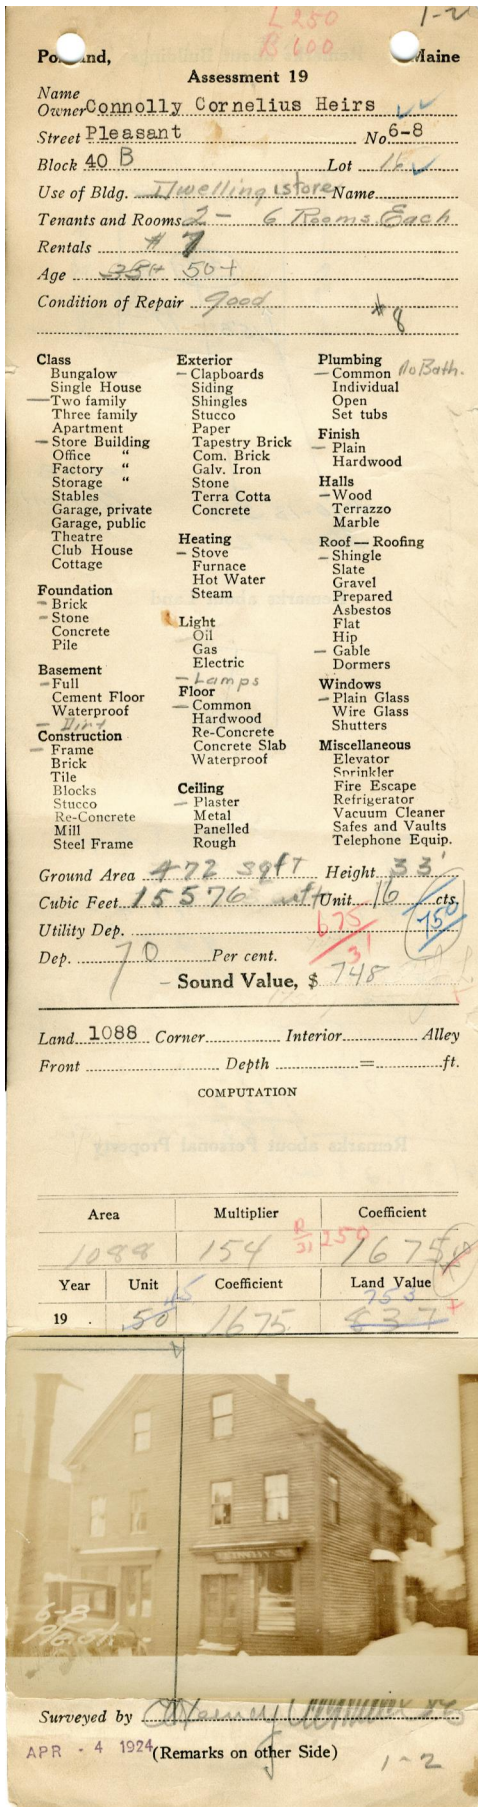 L 250
B 100
1-2
Portland, Maine
Assessment 19
Name
Owner Connolly Cornelius Heirs
Street Pleasant No. 6-8
Block 40 B Lot 16
Use of Bldg. Dwelling & store Name
Tenants and Rooms 2 - 6 Rooms Each
Rentals # 7
Age 35+ 50+
Condition of Repair good
#8
Class
Bungalow
Single House
Two family
Three family
Apartment
Store Building
Office "
Factory "
Storage "
Stables
Garage, private
Garage, public
Theatre
Club House
Cottage
Foundation
Brick
Stone
Concrete
Pile
Basement
Full
Cement Floor
Waterproof
Dirt
Construction
Frame
Brick
Tile
Blocks
Stucco
Re-Concrete
Mill
Steel Frame
Exterior
Clapboards
Siding
Shingles
Stucco
Paper
Tapestry Brick
Com. Brick
Galv. Iron
Stone
Terra Cotta
Concrete
Heating
Stove
Furnace
Hot Water
Steam
Light
Oil
Gas
Electric
Lamps
Floor
Common
Hardwood
Re-Concrete
Concrete Slab
Waterproof
Ceiling
Plaster
Metal
Panelled
Rough
Plumbing
Common No Bath.
Individual
Open
Set tubs
Finish
Plain
Hardwood
Halls
Wood
Terrazzo
Marble
Roof — Roofing
Shingle
Slate
Gravel
Prepared
Asbestos
Flat
Hip
Gable
Dormers
Windows
Plain Glass
Wire Glass
Shutters
Miscellaneous
Elevator
Sprinkler
Fire Escape
Refrigerator
Vacuum Cleaner
Safes and Vaults
Telephone Equip.
Ground Area 472 sqft Height 33'
Cubic Feet 15576 Unit 16 cts.
Utility Dep. 675/31 750
Dep. 70 Per cent.
Sound Value, $ 748
Land 1088 Corner Interior Alley
Front Depth = ft.
COMPUTATION
Area Multiplier Coefficient
1088 154 R/31 250 1675
Year Unit Coefficient Land Value
45 753
19 . 50 1675 837
6-8
Surveyed by
APR - 4 1924 (Remarks on other Side)
1-2